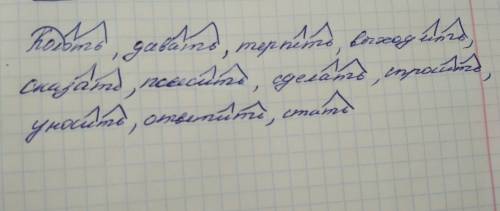 Колоть, давать, терпить, выходить,
сказать, писить, сделать, строить,
уносить, ответить, стать